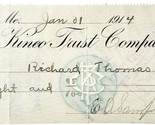 Me. Jan 01 1914
Kineo Trust Compa
Richard Thomas
ght and 10